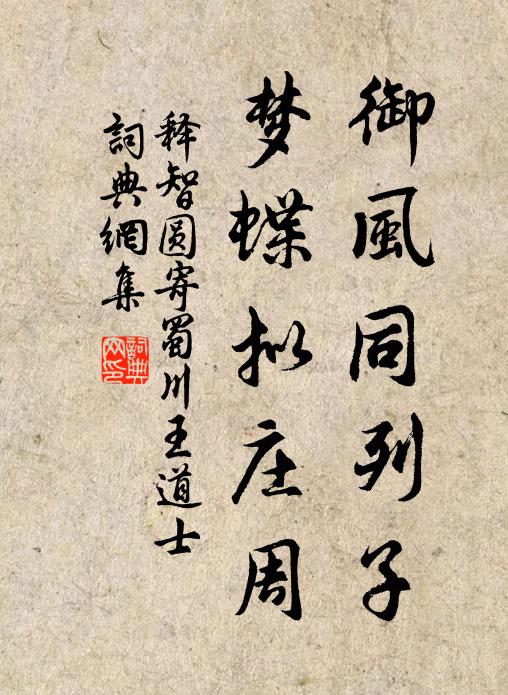 御風同列子
梦蝶拟庄周
释智圆寄蜀川王道士
詞典網集
詞典网印